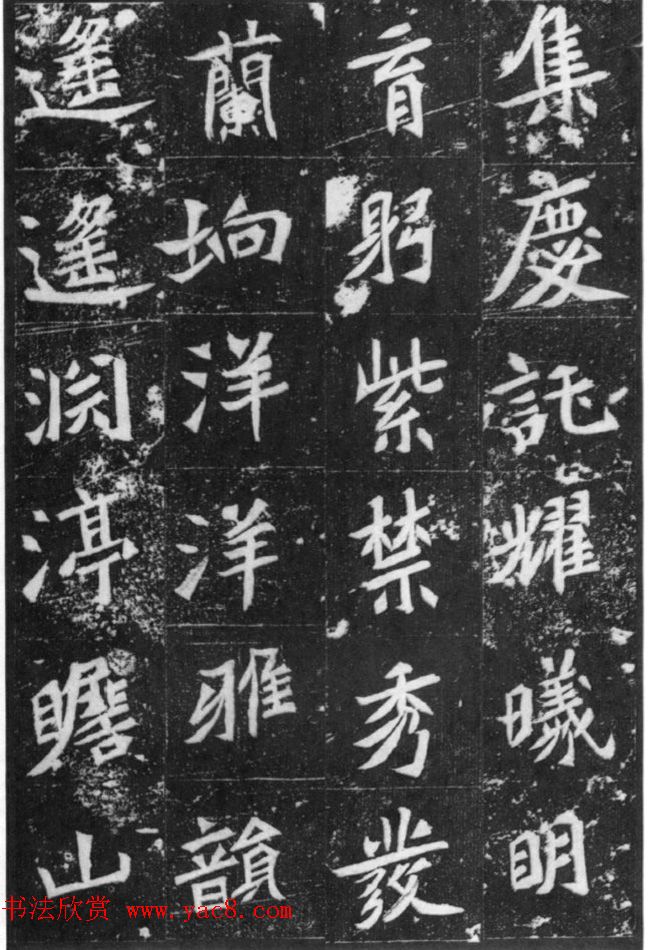 集慶託耀曦明
育躬紫禁秀發
蘭坰洋洋雅韻
遙遙淵渟瞻山
书法欣赏 www.yac8.com